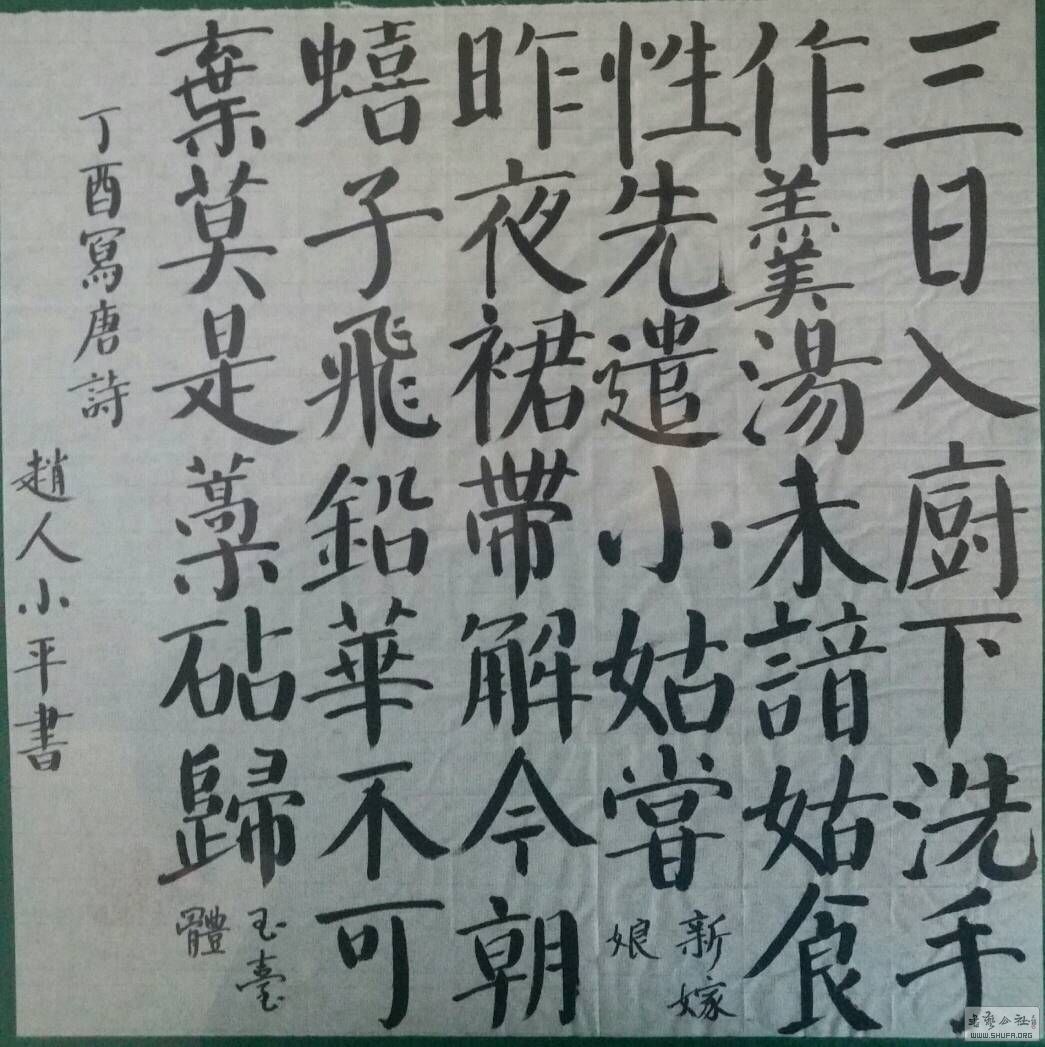 三日入厨下洗手
作羹湯未諳姑食
性先遣小姑嘗
新嫁
娘
昨夜裙帶解今朝
蟢子飛鉛華不可
棄莫是藁砧歸
玉臺
體
丁酉寫唐詩
趙人小平書
书艺公社
WWW.SHUFA.ORG